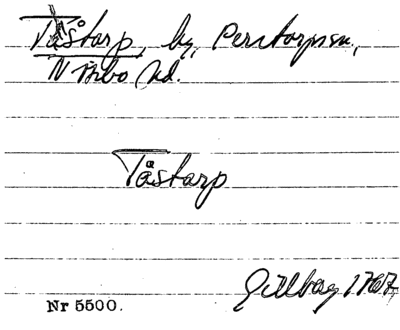 Tåstarp, by, Perstorps sn,
N Åsbo hd.
Tåstarp
Gillberg 1767,
Nr 5500.